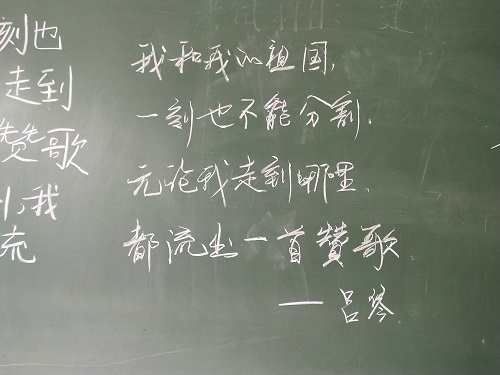 刻也
走到
赞歌
我
流
我和我的祖国,
一刻也不能分割.
无论我走到哪里、
都流出一首赞歌
— 吕琴